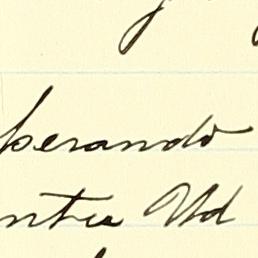 perando
ntra Ud